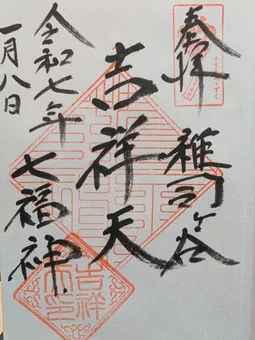 奉拝
雑司ヶ谷
吉祥天
七福神
令和七年
一月八日
吉祥